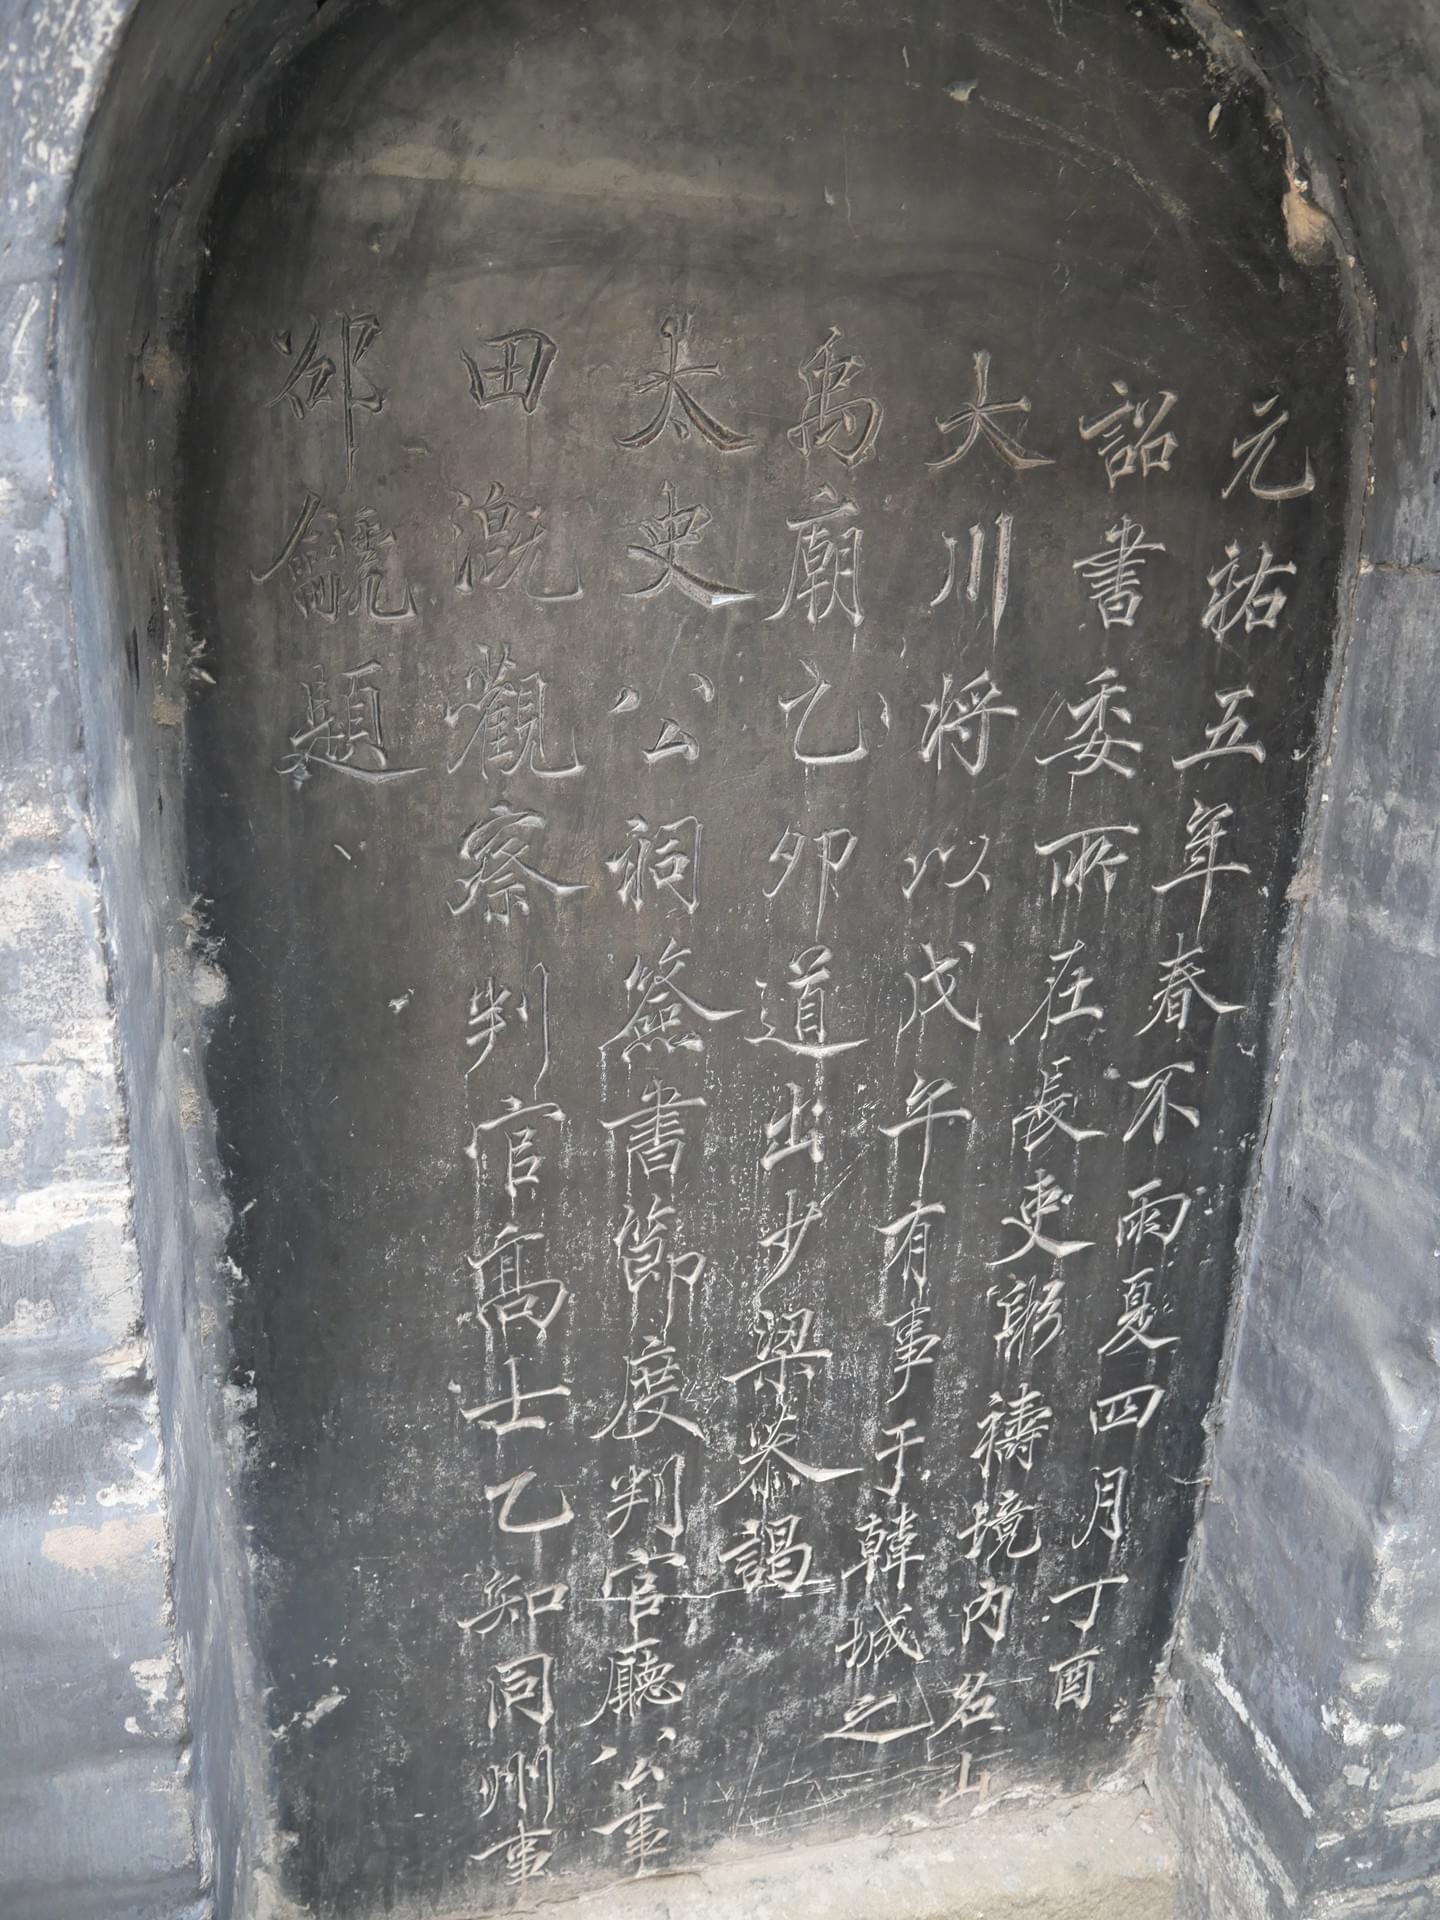 元祐五年春不雨夏四月丁酉
詔書委所在長吏躬禱境内名山
大川將以戊午有事于韓城之
禹廟乙卯道出少梁恭謁
太史公祠簽書節度判官廳公事
田漑觀察判官高士乙知同州事
邵䶵題